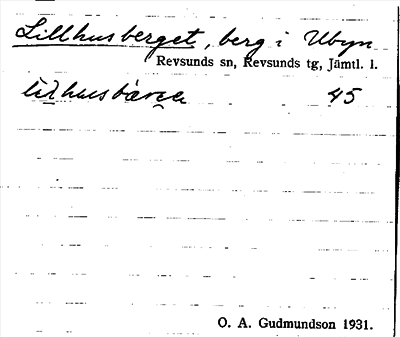 Lillhusberget, berg i Ubyn
Revsunds sn, Revsunds tg, Jämtl. l.
45
O. A. Gudmundson 1931.